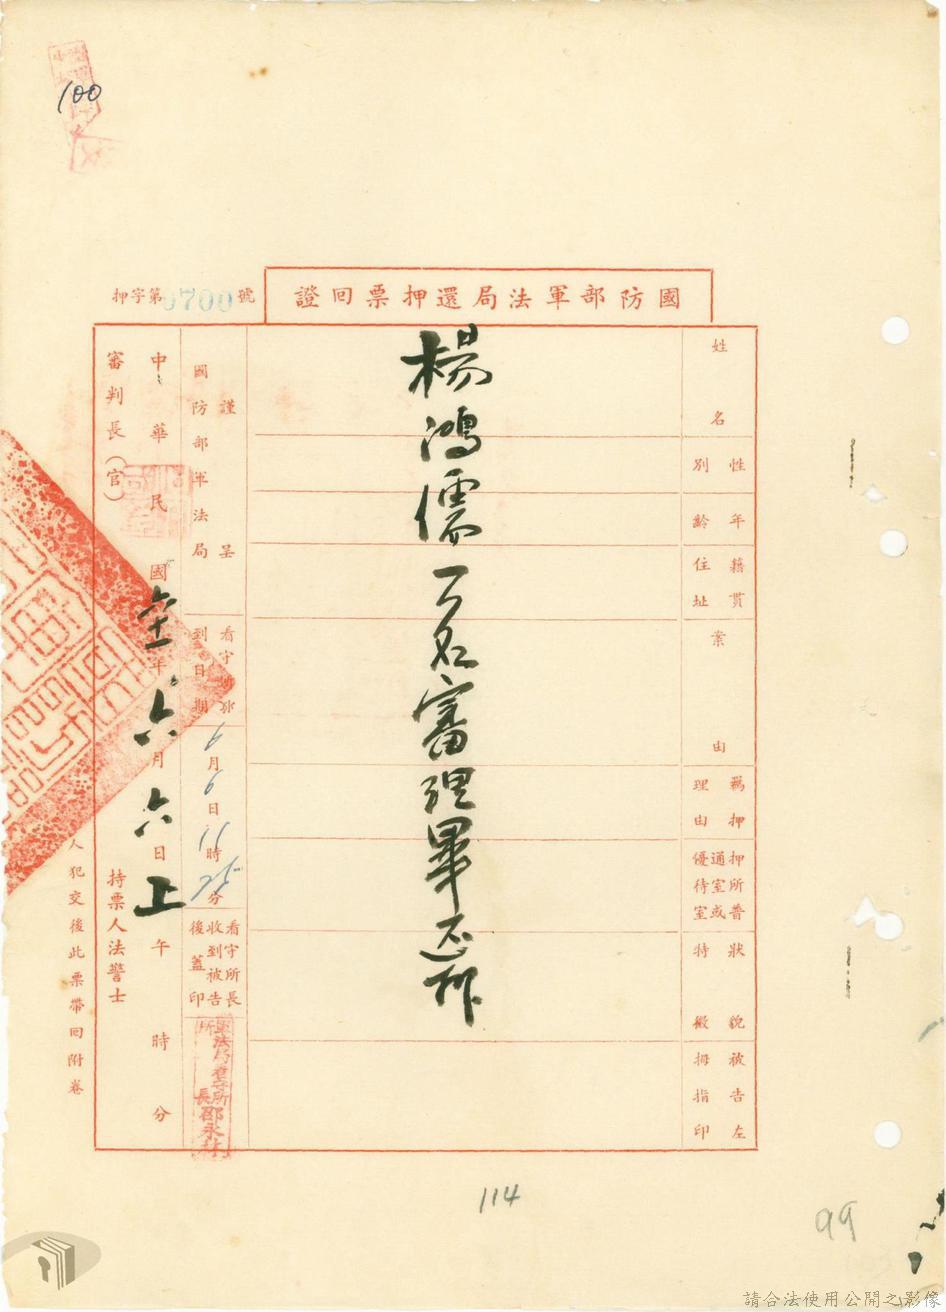 100
國防部軍法局還押票回證
押字第0700號
姓名
性別
年齡
籍貫住址
案由
羈押理由
押所普通室或優待室
狀貌特徵
被告左拇指印
楊鴻儒一名審理畢還押
謹呈
國防部軍法局
看守所收到日期
6月6日11時25分
看守所長收到被告後蓋印
軍法局看守所所長邵永林
中華民國六十一年六月六日上午 時 分
審判長(官)
持票人法警士
人犯交後此票帶回附卷
114
99
請合法使用公開之影像